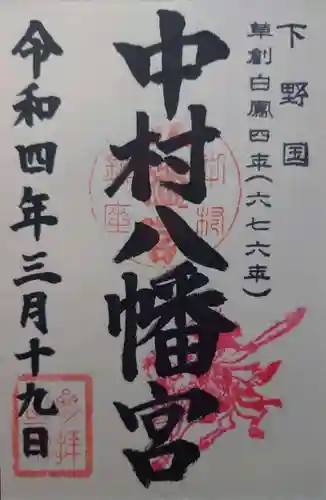 下野国
草創白鳳四年(六七六年)
中村八幡宮
令和四年三月十九日
参拝